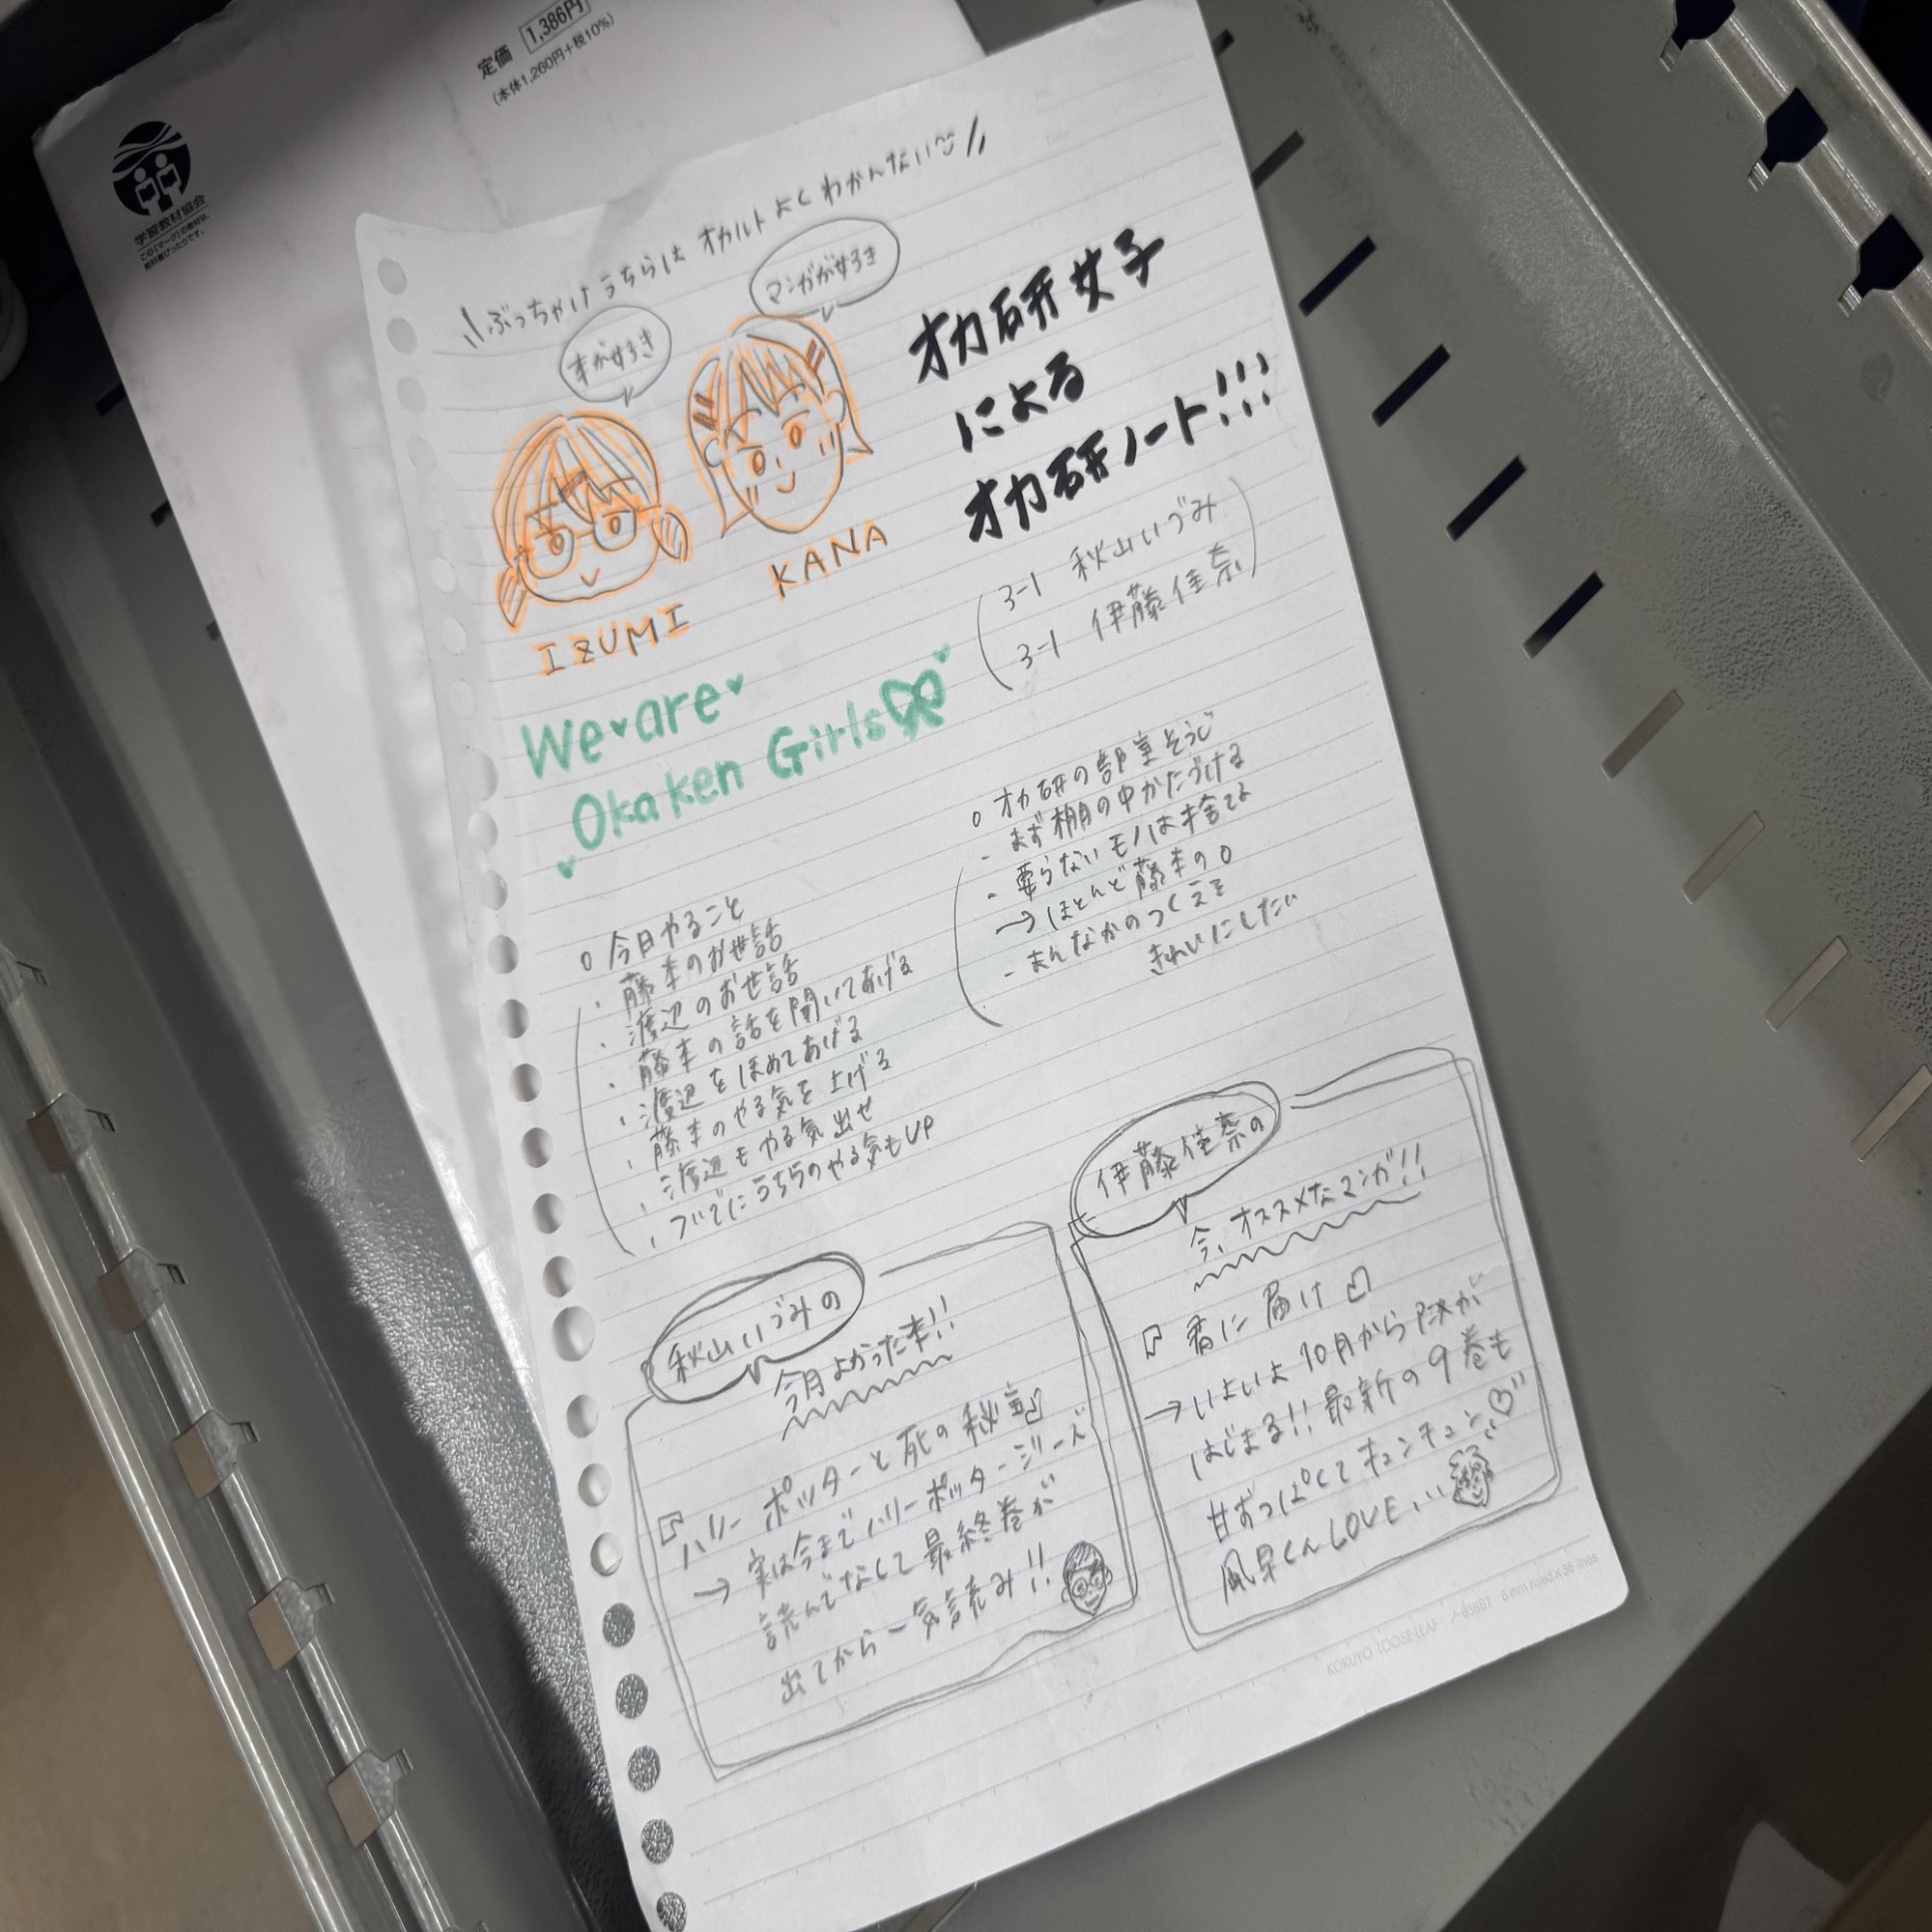 定価 1,386円
(本体1,260円+税10%)
学習教材協会
この「マーク」の教材は、
教科書ぴったりです。
\\ぶっちゃけうちらは オカルト よく わかんない//
本が好き
マンガが好き
IZUMI
KANA
オカ研女子
による
オカ研ノート!!!
(3-1 秋山いづみ
3-1 伊藤佳奈)
We are
Okaken Girls
○ 今日やること
・藤本のお世話
・渡辺のお世話
・藤本の話を聞いてあげる
・渡辺をほめてあげる
・藤本のやる気を上げる
・渡辺もやる気出せ
・ついでにうちらのやる気もUP
○ オカ研の部室そうじ
- まず棚の中かたづける
- 要らないモノは捨てる
→ほとんど藤本の○
- まんなかのつくえを
きれいにしたい
秋山いづみの
今月よかった本!!
『ハリーポッターと死の秘宝』
→ 実は今までハリーポッターシリーズ
読んでなくて最終巻が
出てから一気読み!!
伊藤佳奈の
今、オススメなマンガ!!
『君に届け』
→いよいよ10月から映が
はじまる!! 最新の9巻も
甘ずっぱくてキュンキュン♡
風早くんLOVE...
KOKUYO LOOSE-LEAF ノ-836BT 6 mm ruled x 36 lines